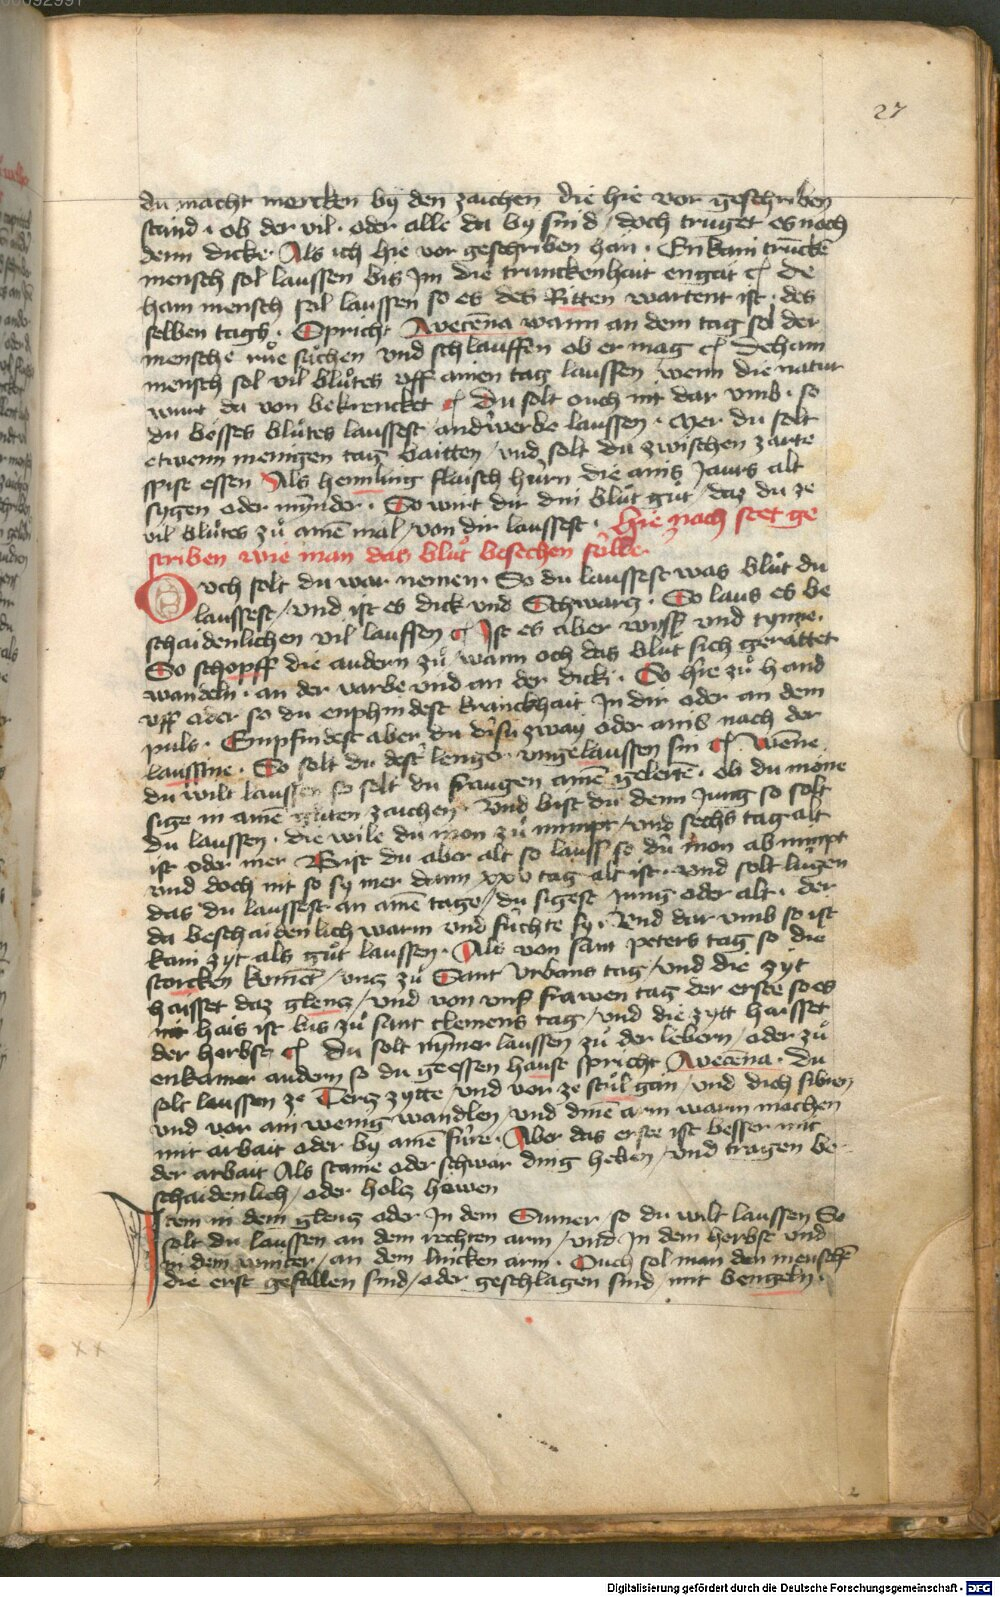 27
du macht mercken by den zaichen die hie vor geschriben
stand · ob der vil · oder alle da by sind / doch truget es noch
denn dicke · Als ich hie vor geschriben han · Enkain trucke
mensch sol laussen bis Im die trunckenhait engat ¶ De
ham mensch sol laussen so es des Ritten wartent ist · des
selben tags · Spricht Avecēna wann an dem tag sol der
mensche růe sůchen vnd schlauffen ob er mag ¶ Deham
mensch sol vil blůtes vff ainen tag laussen / wenn die natur
wirt da von bekrencket ¶ Du solt ouch nit dar vmb · so
du bösses blůtes laussest / andwerbe laussen · Mer du solt
etwenn menigen tag baitten / vnd solt du zwischen zarte
spise essen Als hemling flaisch hůrn die ainis Jaurs alt
sygen oder mynder · So wirt dir din blůt gůt / daz du ze
vil blůtes zů ainē mal / von dir laussest · Hie nach stet ge
scriben wie man das blůt besechen sölle
Ouch solt du war nemen · So du laussest was blůt du
laussest / vnd ist es dick vnd Schwarz · So laus es be
schaidenlichen vil lauffen ¶ Ist es aber wiss vnd tynne ·
So schopff die andern zů / wann och das blůt sich gerättet
wandeln · an der varbe vnd an der dicki · So hie zů hand
vff oder so du enphindest kranckhait In dir oder an dem
puls · Empfindest aber du disu zway oder ainis nach der
laussine · So solt du dest lenger vngelaussen sin ¶ Wenne
du wilt laussen so solt du fraugen ainē gelerte · ob du mōne
sige in ainē gůten zaichen · vnd bist du denn Jung so solt
du laussen · die wile du mon zů nimpt / vnd sechs tag alt
ist oder mer Bist du aber alt so lauss so du mon ab nimpt
vnd doch nit so sy mer dann xxv tag alt ist · vnd solt lůgen
das du laussest an ainē tage / du sigest Jung oder alt · der
da beschaidenlich warm vnd fůchte sy · Vnd dar vmb so ist
kain zyt als gůt laussen · Als von sant peters tag so die
storcken komēt / vntz zů Sant Vrbans tag / vnd die zyt
haisset daz glentz / vnd von vnss frawen tag der erste so es
nit hais ist bis zů sant clemens tag / vnd die zytt haisset
der herbst ¶ Du solt nymer laussen zů der lebern / oder zů
enkainer andern so du geessen hauſt spricht Avecēna · Du
solt laussen ze Tertz zytte / vnd vor ze stůl gan / vnd dich
vnd vor ain wenig wandlen / vnd dinē arm warm machen
mit arbait oder by ainē fůre · Aber das erste ist besser mit
der arbait Als staine oder schwär ding heben / vnd tragen be
schaidenlich / oder holtz howen
Item in dem glentz oder In dem Sumer / so du wilt laussen So
solt du laussen an dem rechten arm / vnd In dem herbst vnd
In dem winter / an dem lincken arm · Ouch sol man den menschē
die erst gefallen sind / oder geschlagen sind mit bengeln ·
xx
Digitalisierung gefördert durch die Deutsche Forschungsgemeinschaft - DFG